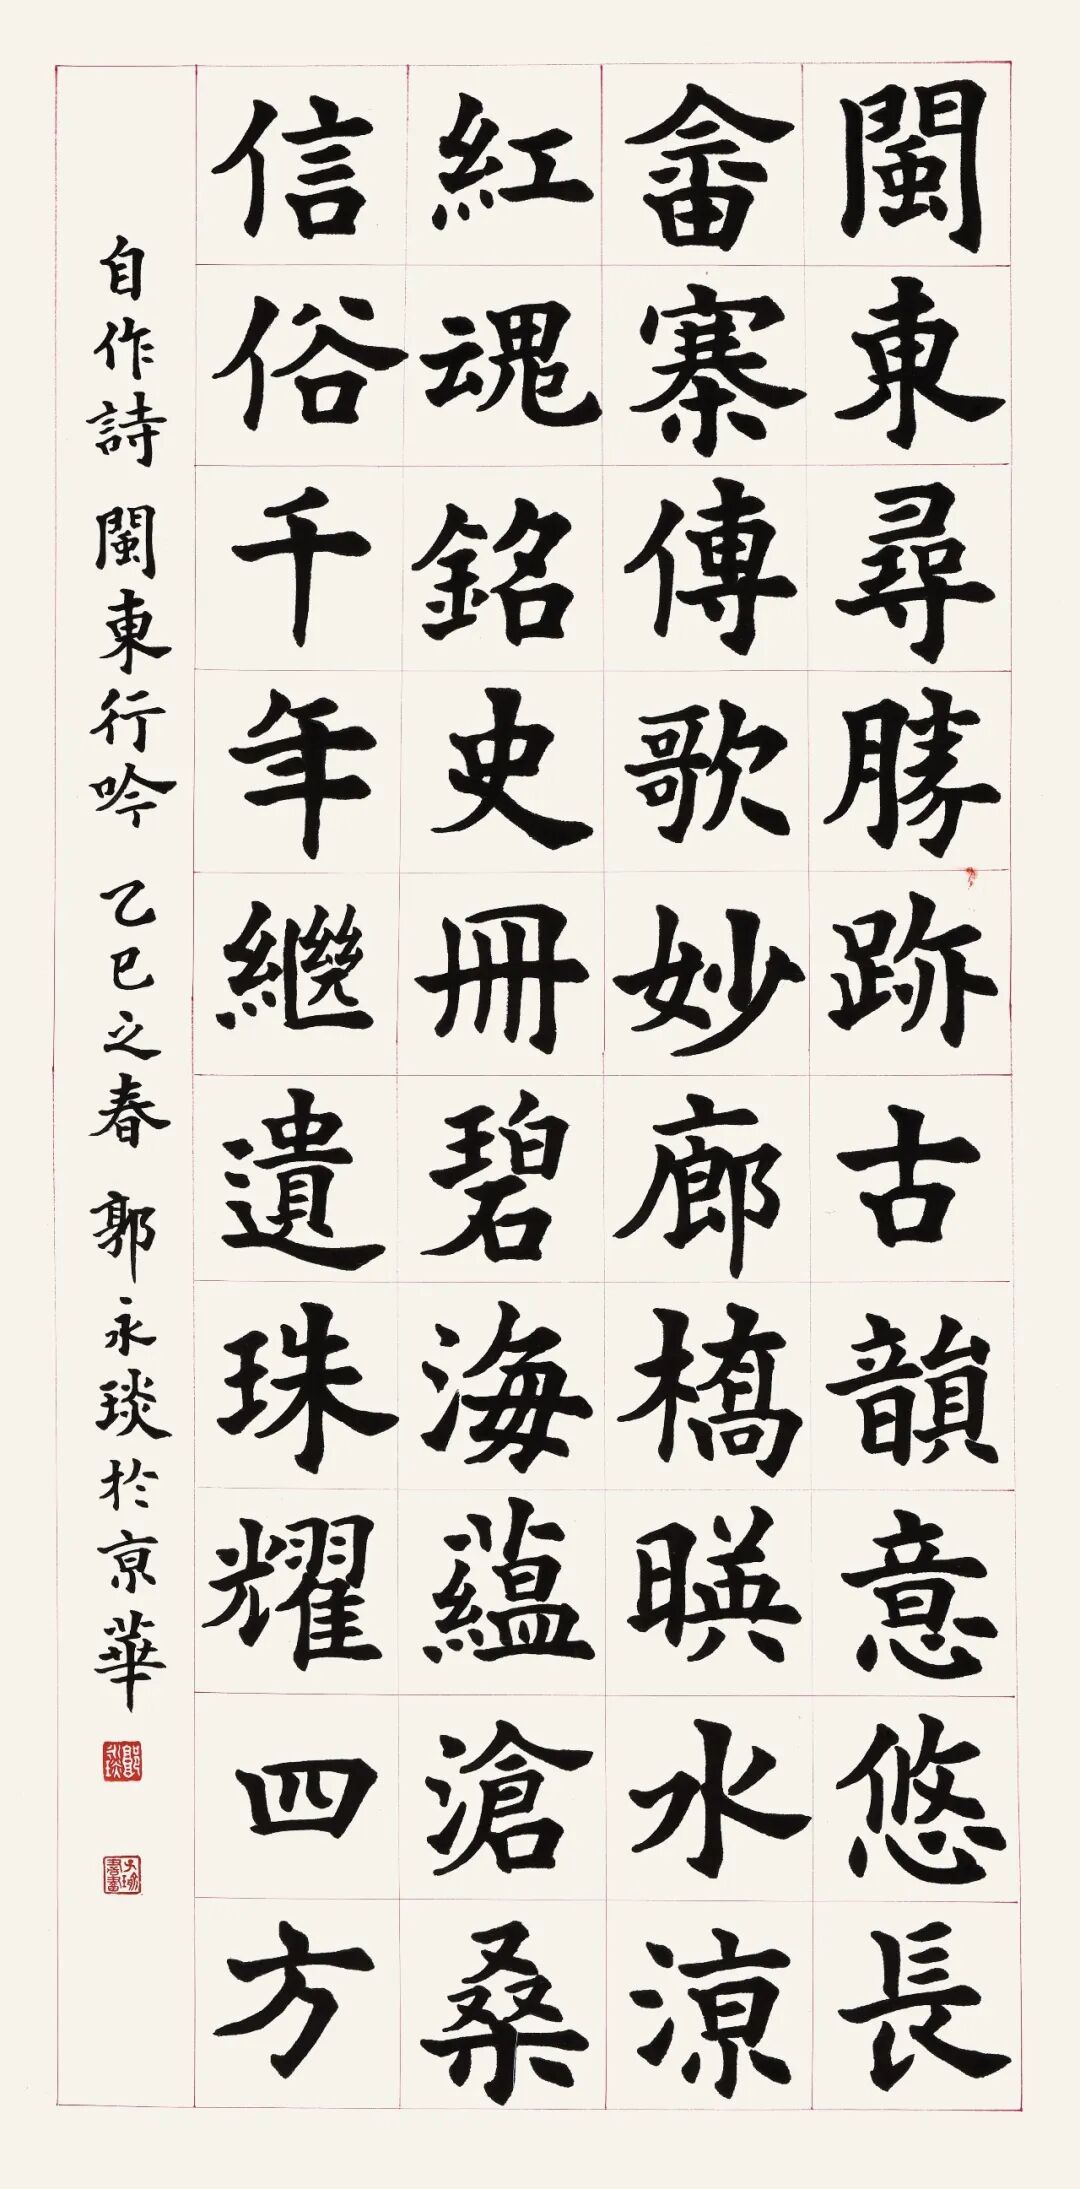 閩東尋勝跡古韻意悠長
畲寨傳歌妙廊橋暎水涼
紅魂銘史冊碧海蘊滄桑
信俗千年繼遺珠耀四方
自作詩 閩東行吟 乙巳之春 郭永琰於京華